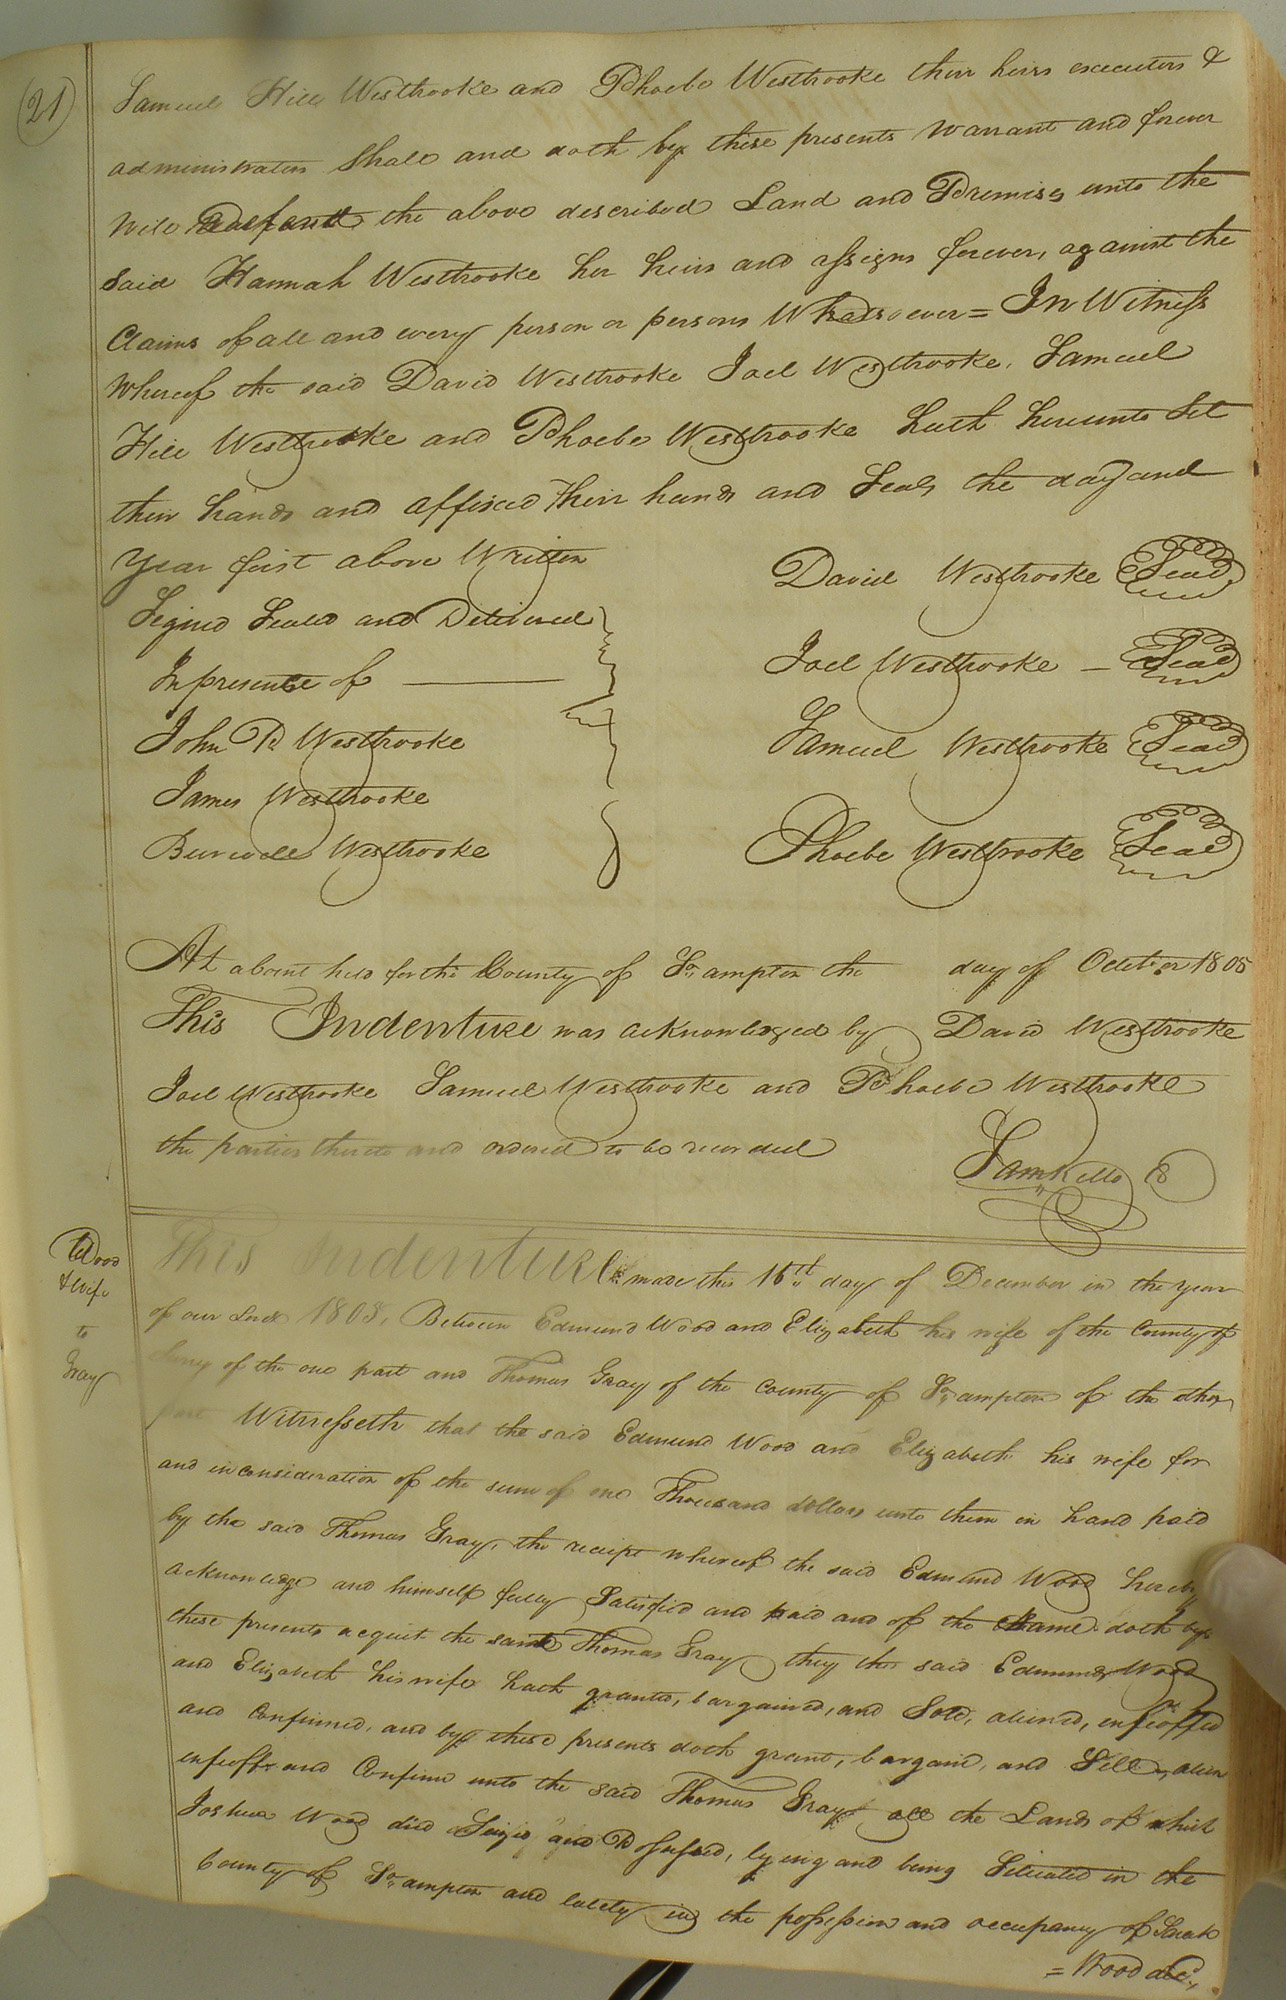 (21)
Samuel Hill Westbrooke and Phoebe Westbrooke their heirs executors &
administrators Shall and doth by these presents Warrant and forever
Will Defend the above described Land and Premises unto the
Said Hannah Westbrooke her heirs and assigns forever, against the
Claims of all and every person or persons Whatsoever = In Witness
Whereof the said David Westbrooke Joel Westbrooke, Samuel
Hill Westbrooke and Phoebe Westbrooke hath hereunto Set
their hands and affixed Their hands and Seals the day and
Year first above Written
David Westbrooke Seal
Signed Sealed and Delivered
In presence of
Joel Westbrooke — Seal
John R Westbrooke
Samuel Westbrooke Seal
James Westbrooke
Westbrooke
Phoebe Westbrooke Seal
At a Court held for the County of So,ampton the day of October 1808
This Indenture was acknowledged by David Westbrooke
Joel Westbrooke Samuel Westbrooke and Phoebe Westbrooke
the parties thereto and ordered to be recorded
Sam Kello C
Wood
& Wife
to
Gray
This Indenture made this 16th day of December in the year
of our Lord 1808, Between Edmund Wood and Elizabeth his wife of the County of
of the one part and Thomas Gray of the County of So,ampton of the other
part Witnesseth that the said Edmund Wood and Elizabeth his wife for
and in consideration of the sum of one Thousand dollars unto them in hand paid
by the said Thomas Gray, the receipt whereof the said Edmund Wood hereby
acknowledge and himself fully Satisfied and paid and of the Same doth by
these presents acquit the said Thomas Gray they the said Edmund Wood
and Elizabeth his wife hath granted, bargained, and Sold, aliened, enfeoffed
and Confirmed, and by these presents doth grant, bargain, and Sell, alien
enfeoff and Confirm unto the said Thomas Gray all the Lands of which
Joshua Wood died Seized and Possessed, lyeing and being Situated in the
County of So,ampton and lately in the possession and occupancy of Sarah
= Wood dec,